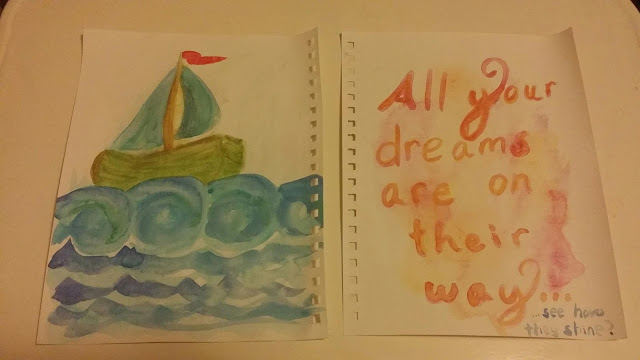 All your
dreams
are on
their
way...
...see how
they shine?